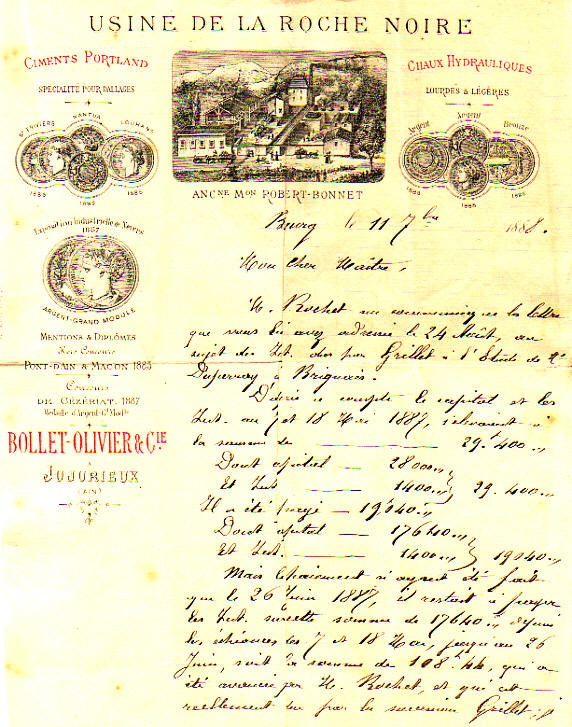 USINE DE LA ROCHE NOIRE
CIMENTS PORTLAND
SPÉCIALITÉ POUR DALLAGES
CHAUX HYDRAULIQUES
LOURDES & LÉGÈRES
ST TRIVIERS NANTUA LOUHANS
1886 1885 1886
Argent Argent Bronze
1885 1885
ANCNE MON ROBERT-BONNET
Exposition Industrielle de Nevers
1887
ARGENT-GRAND MODULE
MENTIONS & DIPLÔMES
Hors Concours
PONT-D'AIN & MACON 1883
Concours
DE CÉZÉRIAT. 1887
Médaille d'Argent
BOLLET-OLIVIER & CIE
À
JUJURIEUX
(AIN)
Bourg le 11 7bre 1888.
Mon Cher Maître,
M. Rochet me communique la lettre
que vous lui avez adressée le 24 Août, au
sujet des Int. dus par Grillet à l'Etude de Me
à Brignais.
D'après ce compte le capital et les
Int. au 7 et 18 Mai 1887, s'élevaient à
la somme de — 29.400 "
Dont capital — 28000 "
Et Int — 1400 " } 29.400 "
Il a été payé — 19040 "
Dont capital — 17640 "
Et Int. — 1400 " } 19040 "
Mais le paiement n'ayant été fait
que le 26 Juin 1887, il restait à payer
les Int. sur cette somme de 17640 " depuis
les échéances les 7 et 18 Mai, jusqu'au 26
Juin, soit la somme de 108.44, qui a
été avancée par M. Rochet, et qui est
réellement due par la succession Grillet